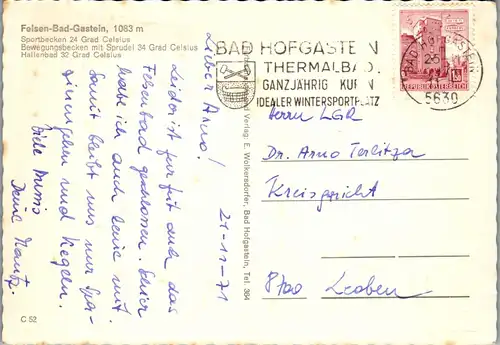 Felsen-Bad-Gastein, 1083 m
Sportbecken 24 Grad Celsius
Bewegungsbecken mit Sprudel 34 Grad Celsius
Hallenbad 32 Grad Celsius
BAD HOFGASTEIN
THERMALBAD
GANZJÄHRIG KUREN
IDEALER WINTERSPORTPLATZ
BAD HOFGASTEIN
5630
REPUBLIK ÖSTERREICH
21-11-71
Lieber Arno!
Leider ist für fut auch das
Felsenbad geschlossen. Schier
habe ich auch keine mit.
Somit bleibt uns nur spa-
zierengehen und Kegeln.
Viele Bussis
Deine
Verlag: E. Wolkersdorfer, Bad Hofgastein, Tel. 364
Herrn LGR
Dr. Arno Terlitza
Kreisgericht
8700 Leoben
C 52